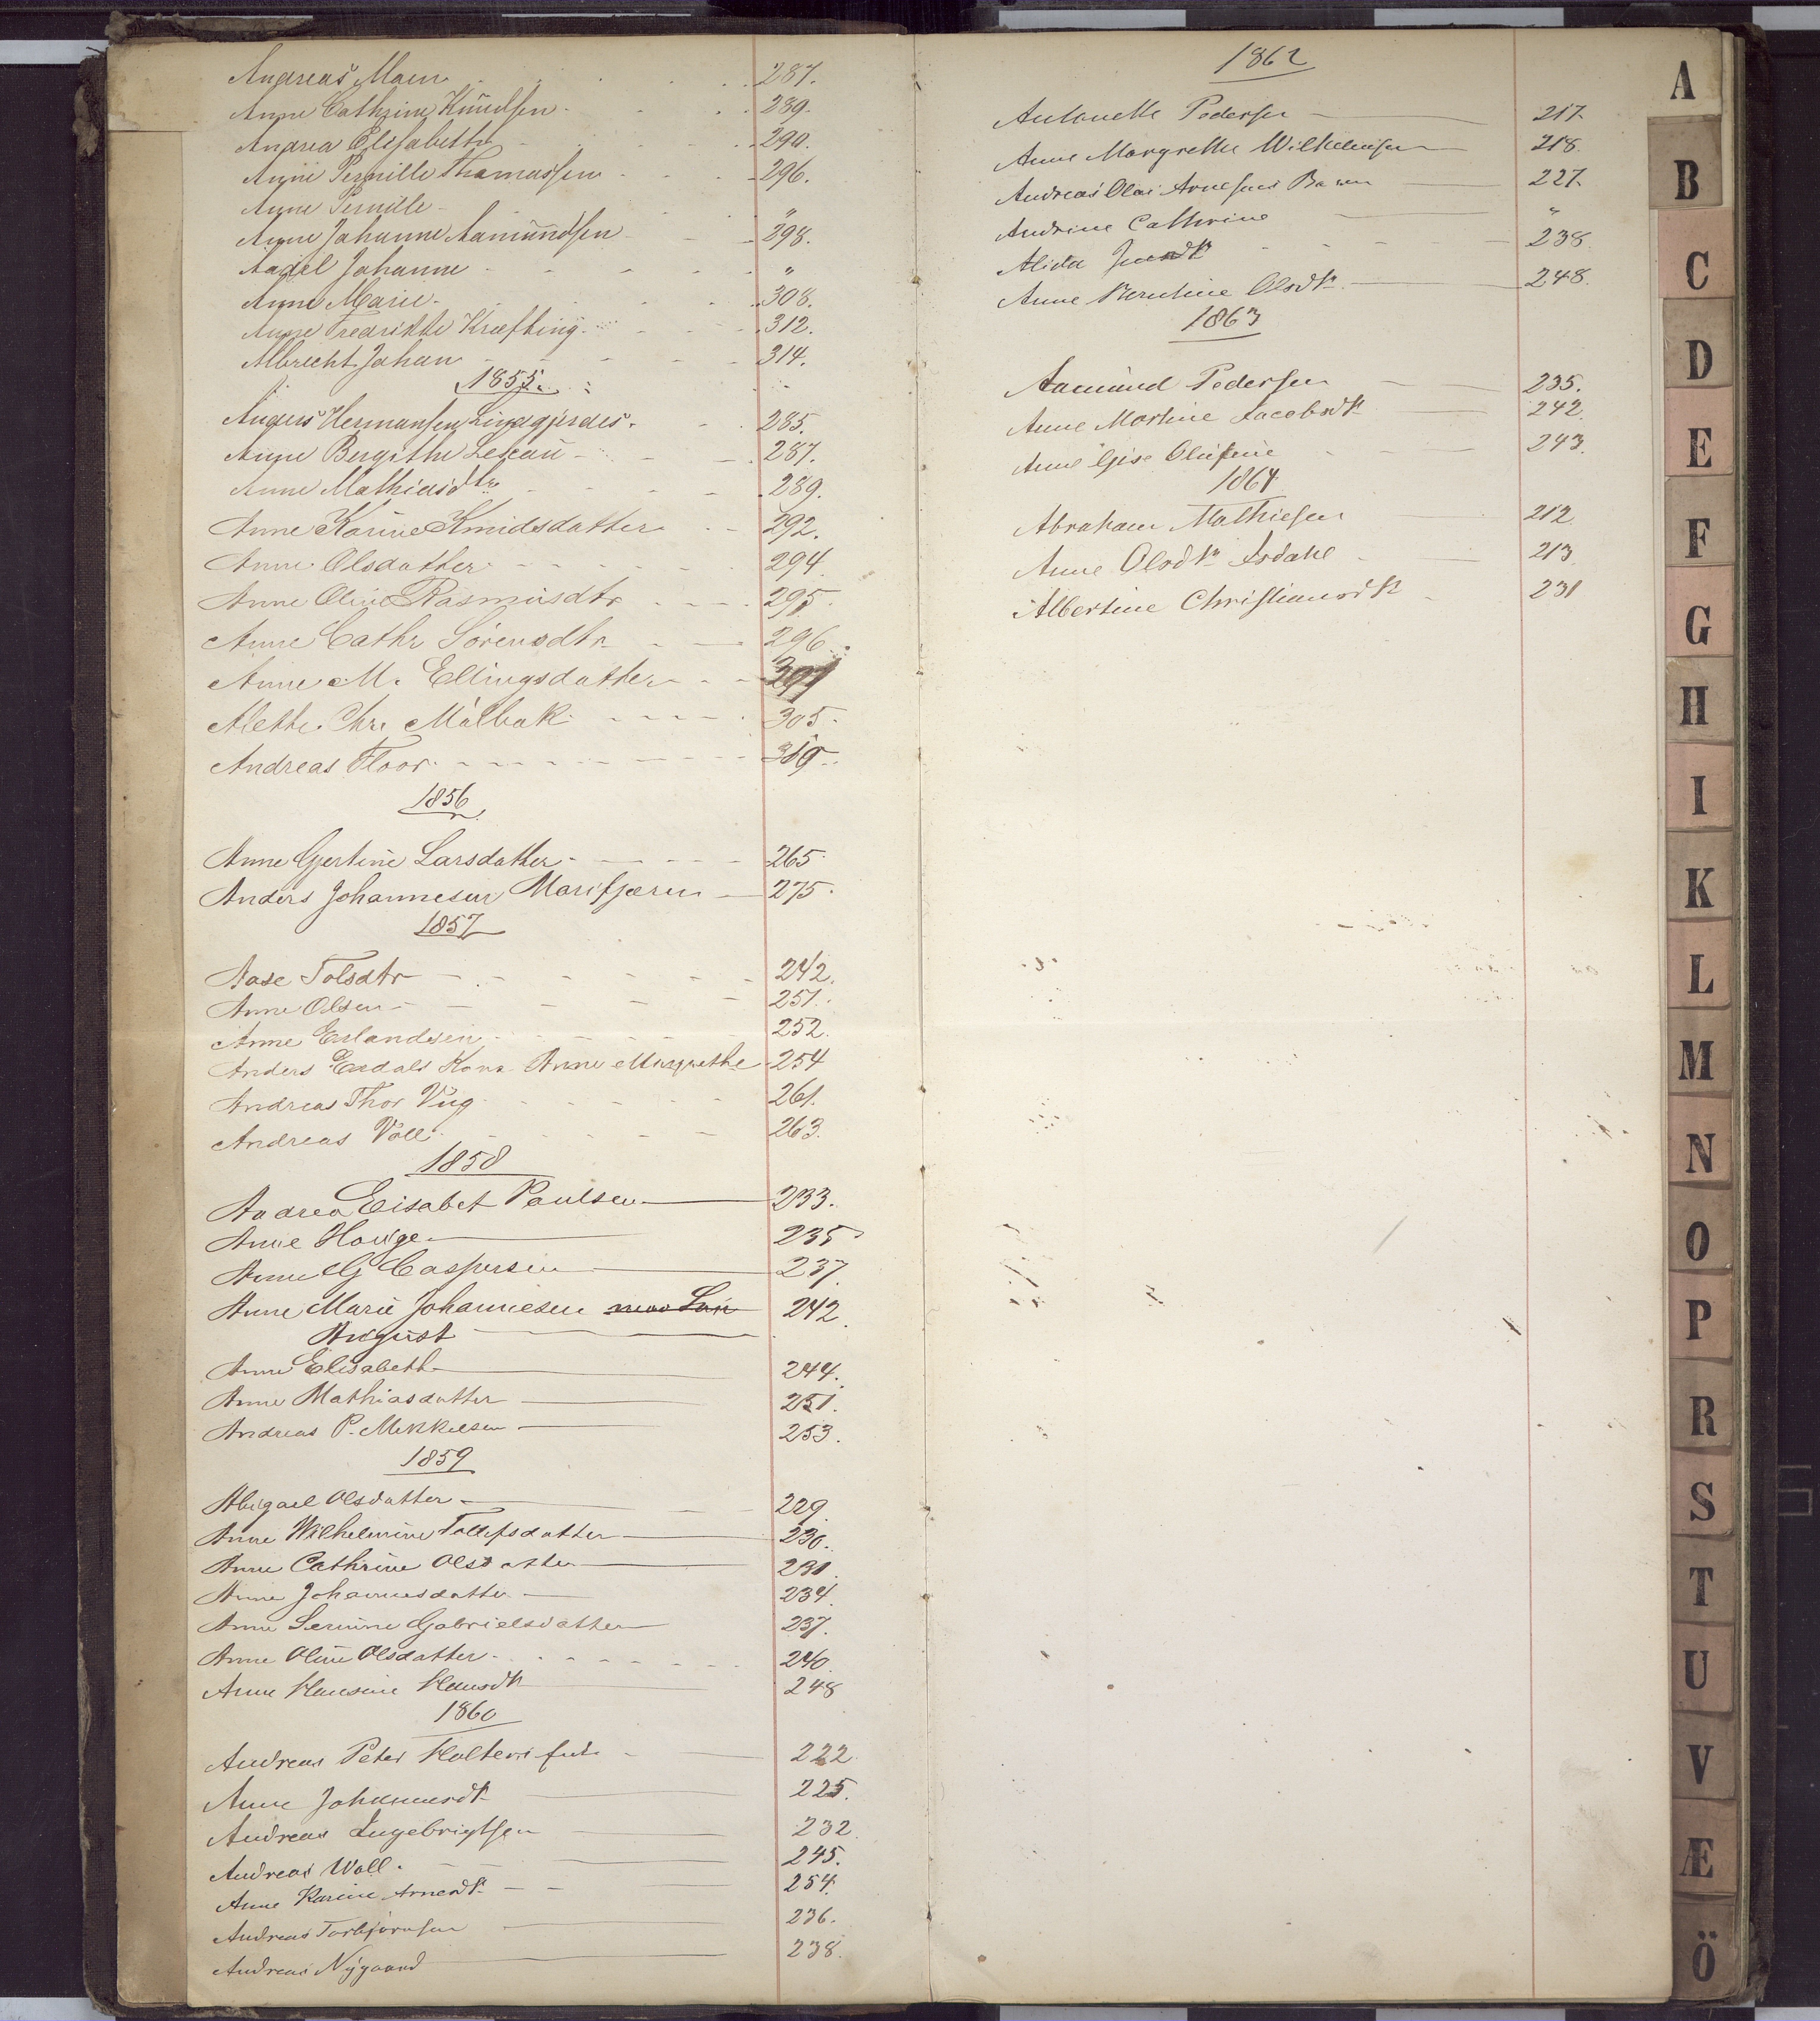 Andreas Maen 287.
Anne Cathrine Knudsen 289.
Andrea Elisabeth 290.
Anne Pernille Thomassen 296.
Anne Pernille "
Anne Johanne Aamundsen 298.
Aadel Johanne "
Anne Marie 308.
Anne Fredrikke Kræfting 312.
Albrecht Johan 314.
1855.
Anders Hermansen Lindgjerdes. 285.
Anne Bergithe 287.
Anne Mathiasdtr 289.
Anne Karine Knudsdatter 292.
Anne Olsdatter 294.
Anne Oline Rasmusdtr 295.
Anne Cathr Sørensdtr 296.
Anne M. Ellingsdatter
Alethe Chr. Målbak 305.
Andreas Floor 319.
1856.
Anne Gjertine Larsdatter 265.
Anders Johannesen Marifjæren 275.
1857
Aase Tolsdtr 242.
Anne Olsen 251.
Anne Erlandsen 252.
Anders Erdals Kona Anne Margrethe 254
Andreas Thor Viig 261.
Andreas Voll 263.
1858
Andrea Elisabet Paulsen 233.
Anne Houge 235
Anne G Caspersen 237.
Anne Marie Johannesen 242.
August
Anne Elisabeth 244.
Anne Mathiasdatter 251.
Andreas P. Mikkelsen 253.
1859
Abigael Olsdatter 229.
Anne Wilhelmine Tollefsdatter 230.
Anne Cathrine Olsdatter 231.
Anne Johannesdatter 234.
Anne Serine Gabrielsdatter 237.
Anne Oline Olsdatter 240.
Anne Hansine Hansdtr 248
1860
Andreas Peter 222.
Anne Johannesdtr 225.
Andreas Ingebrigtsen 232
Andreas Woll. 245.
Anne Karine Arnesdtr 254.
Andreas Torbjørnsen 236.
Andreas Nygaard 238.
1862
Antonette Pedersen 217.
Anne Margrethe Wilhelmsen 218.
Andreas Olai Arnesens Barn 227.
Andrine Cathrine "
Alida 238.
Anne Berntine Olsdtr 248.
1863
Aamund Pedersen 235.
Anne Martine Jacobsdtr 242.
Anne Gise Olufine 243.
1864
Abraham Mathiesen 212.
Anne Olsdtr Asdahl 213.
Albertine Christiansdtr 231
A
B
C
D
E
F
G
H
I
K
L
M
N
O
P
R
S
T
U
V
Æ
Ö